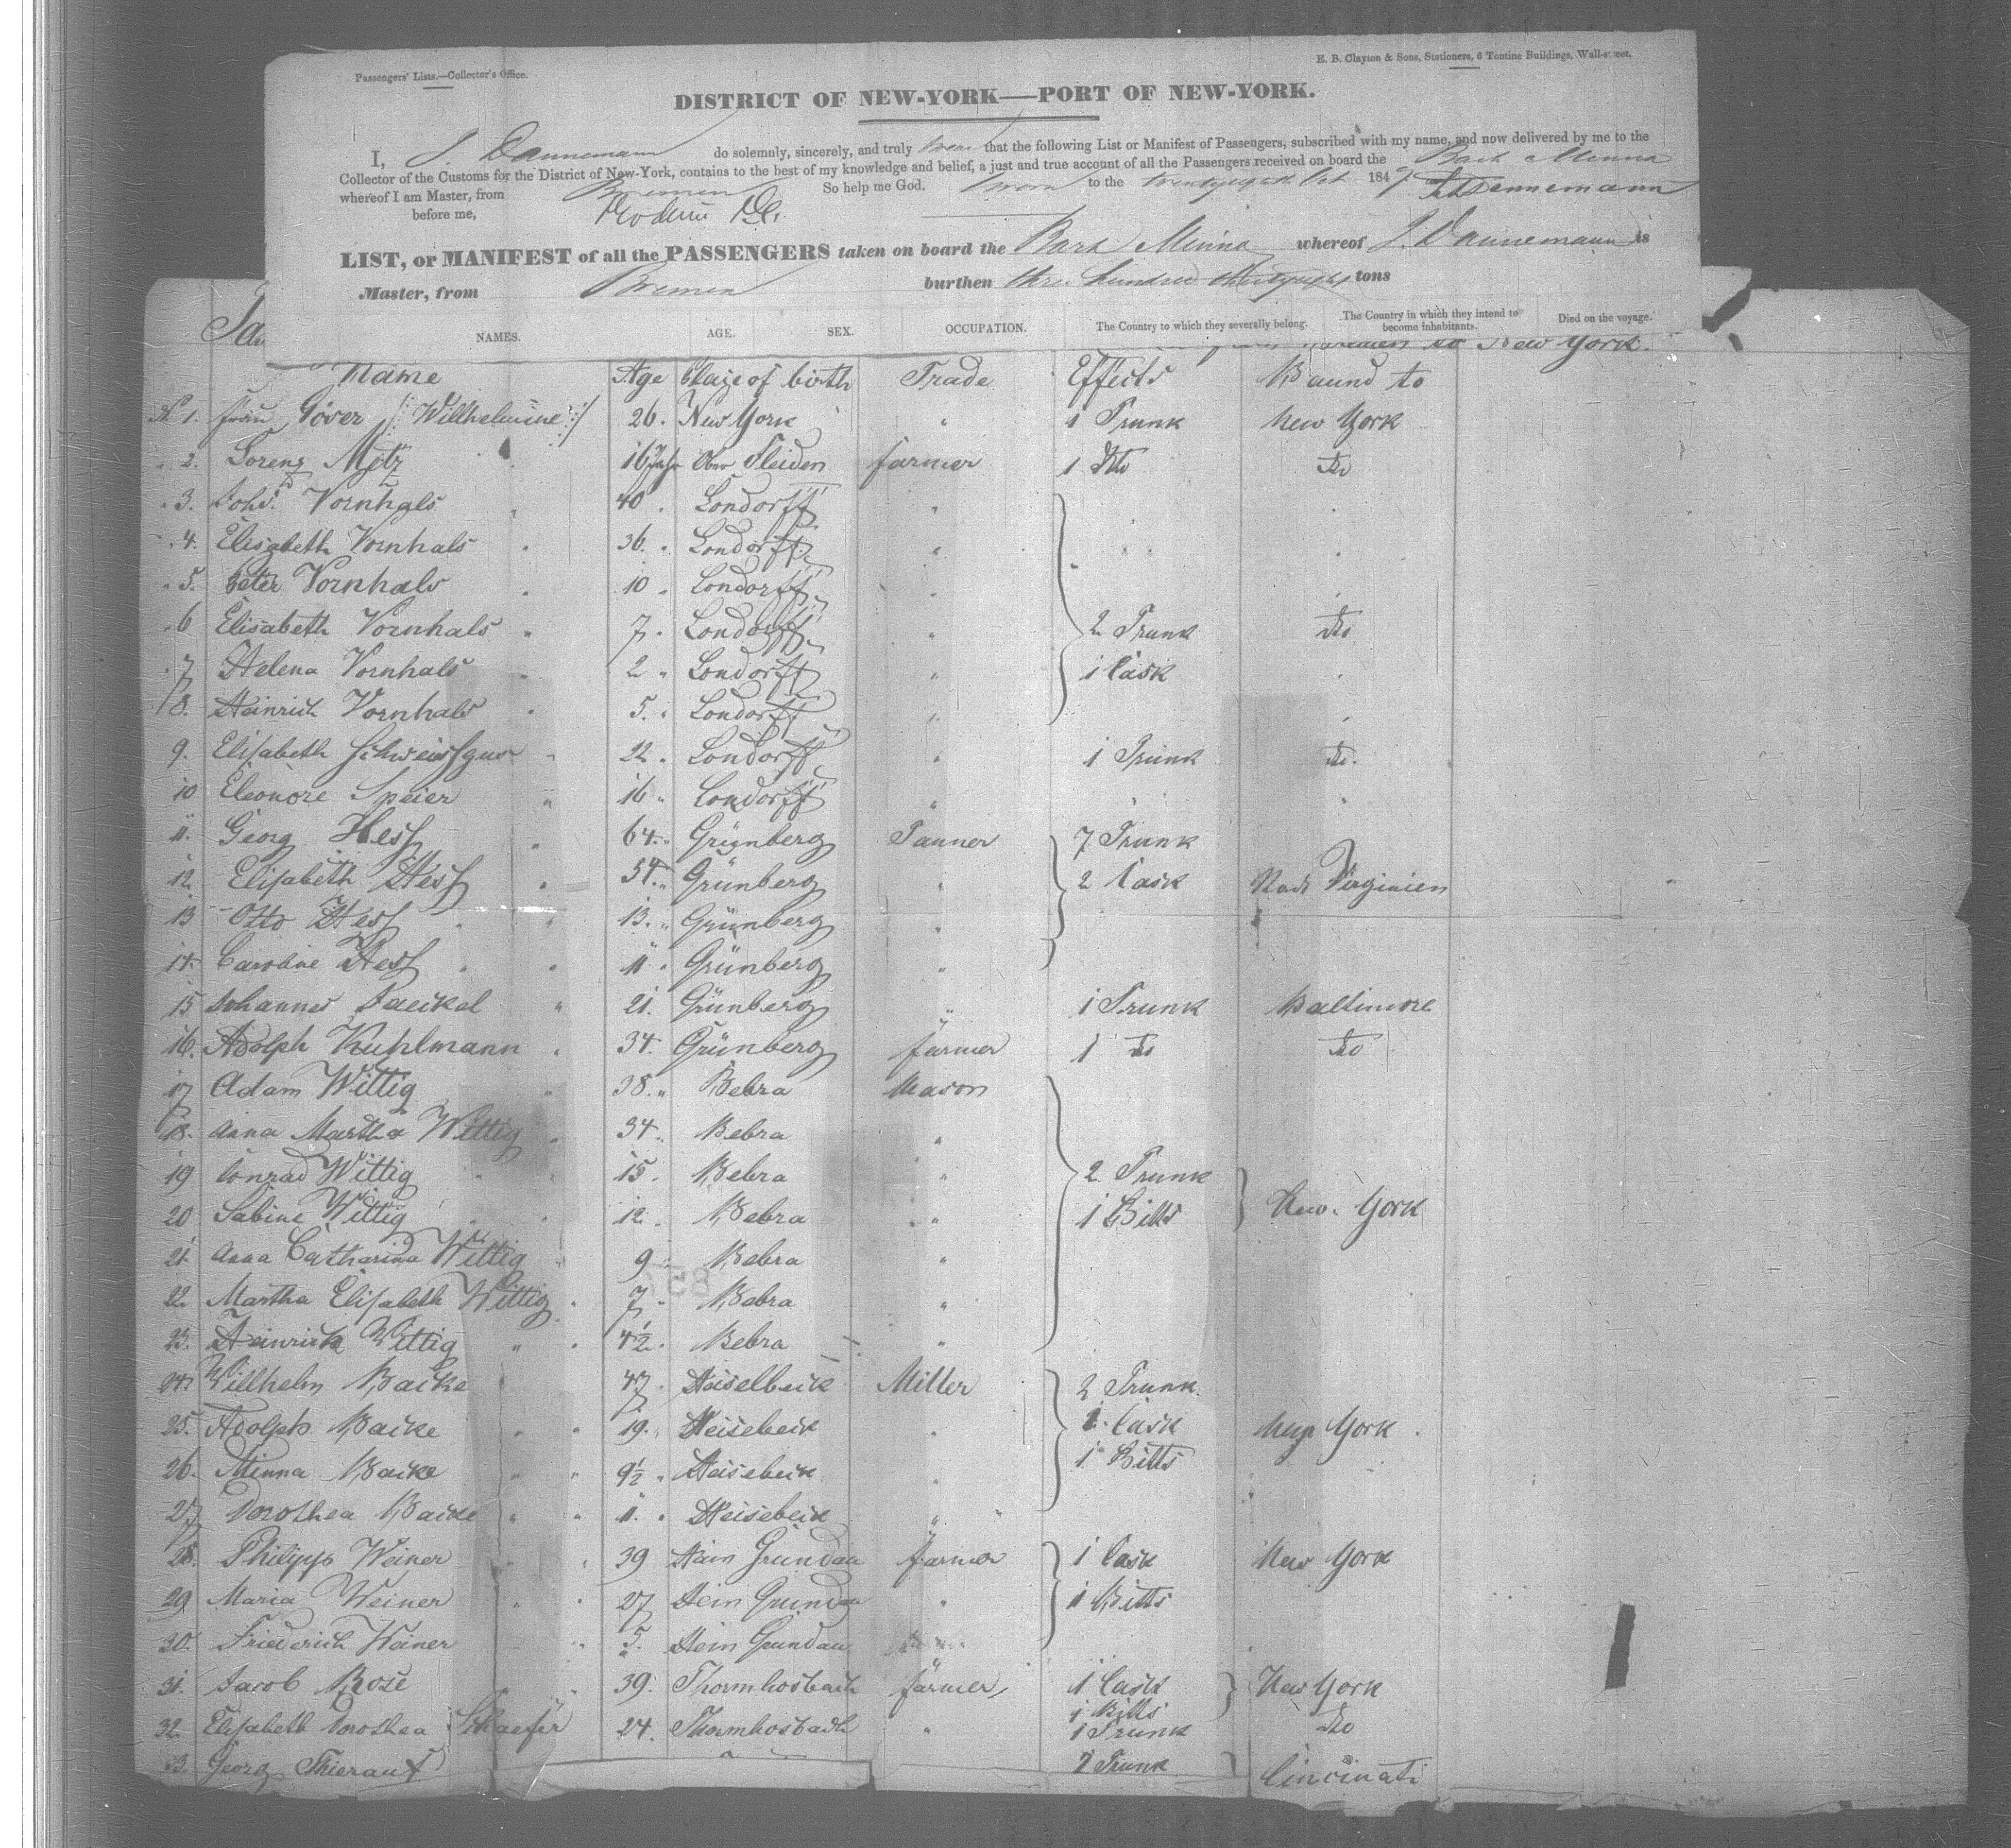 Passengers' Lists.—Collector's Office.
E. B. Clayton & Sons, Stationers, 6 Tontine Buildings, Wall-street.
DISTRICT OF NEW-YORK—PORT OF NEW-YORK.
I, J. Dannemann do solemnly, sincerely, and truly swear that the following List or Manifest of Passengers, subscribed with my name, and now delivered by me to the
Collector of the Customs for the District of New-York, contains to the best of my knowledge and belief, a just and true account of all the Passengers received on board the Bark Minna
whereof I am Master, from Bremen So help me God. Sworn to the twentyeighth Oct 184 Dannemann
before me,
LIST, or MANIFEST of all the PASSENGERS taken on board the Bark Minna whereof J. Dannemann is
Master, from Bremen burthen three hundred thirtyeight tons
NAMES. AGE. SEX. OCCUPATION. The Country to which they severally belong. The Country in which they intend to become inhabitants. Died on the voyage.
to New York.
Name Age Plaze of birth Trade Effects Baund to
No 1. Frau Gover /: Willhelmine :/ 26. New York " 1 Trunk New York
" 2. Lorenz Metz 16 Jahr Ober Fleiden farmer 1 Do Do
" 3. Johs. Vornhals " 40 " Londorff "
" 4. Elisabeth Vornhals " 36. " Londorff "
" 5. Peter Vornhals " 10 " Londorff "
" 6 Elisabeth Vornhals " 7 " Londorff " 2 Trunk Do
" 7 Helena Vornhals " 2 " Londorff " 1 Cask "
" 8. Heinrich Vornhals " 5. " Londorff " "
9. Elisabeth Schweissgut " 22 " Londorff " 1 Trunk Do.
10 Eleonore Speier " 16 " Londorff " "
11. Georg Hess " 64. " Grünberg Tanner 7 Trunk
12 Elisabeth Hess " 54. " Grünberg " 2 Cask Nach Virginien
13 Otto Hess " 13. " Grünberg "
14. Caroline Hess " 11 " Grünberg "
15 Johannes Paeckel " 21. Grünberg " 1 Trunk Baltimore
16. Adolph Kuhlmann " 34. Grünberg farmer 1 Do Do
17 Adam Wittig " 38. " Bebra Mason
18. Anna Martha Wittig " 34. " Bebra "
19 Conrad Wittig " 15. Bebra " 2 Trunk
20 Sabine Wittig " 12. Bebra " 1 Bitts New York
21. Anna Catharina Wittig " 9 " Bebra "
22. Martha Elisabeth Wittig " 7 " Bebra "
23. Heinrich Wittig " 4½ " Bebra "
24. Willhelm Backe 47 " Heiselbeck Miller 2 Trunk.
25. Adolph Backe " 19. " Heisebeck " 1 Cask New York
26. Minna Backe " 9½ " Heisebeck " 1 Bitts
27 Dorothea Backe " 11. " Heisebeck "
28. Philipp Weiner " 39 Hain Gründau farmer 1 Cask New York
29 Maria Weiner " 27 Hein Gründau " 1 Bitts
30. Friederich Weiner " 5. Hein Grundau
31. Jacob Rose " 39. Thormhosbach farmer 1 Cask New York
1 Bitts
32. Elisabeth Dorothea Schaefer 24. Thormhosbach " 1 Trunk Do
33. Georg Thierauf 1 Trunk Cincinati